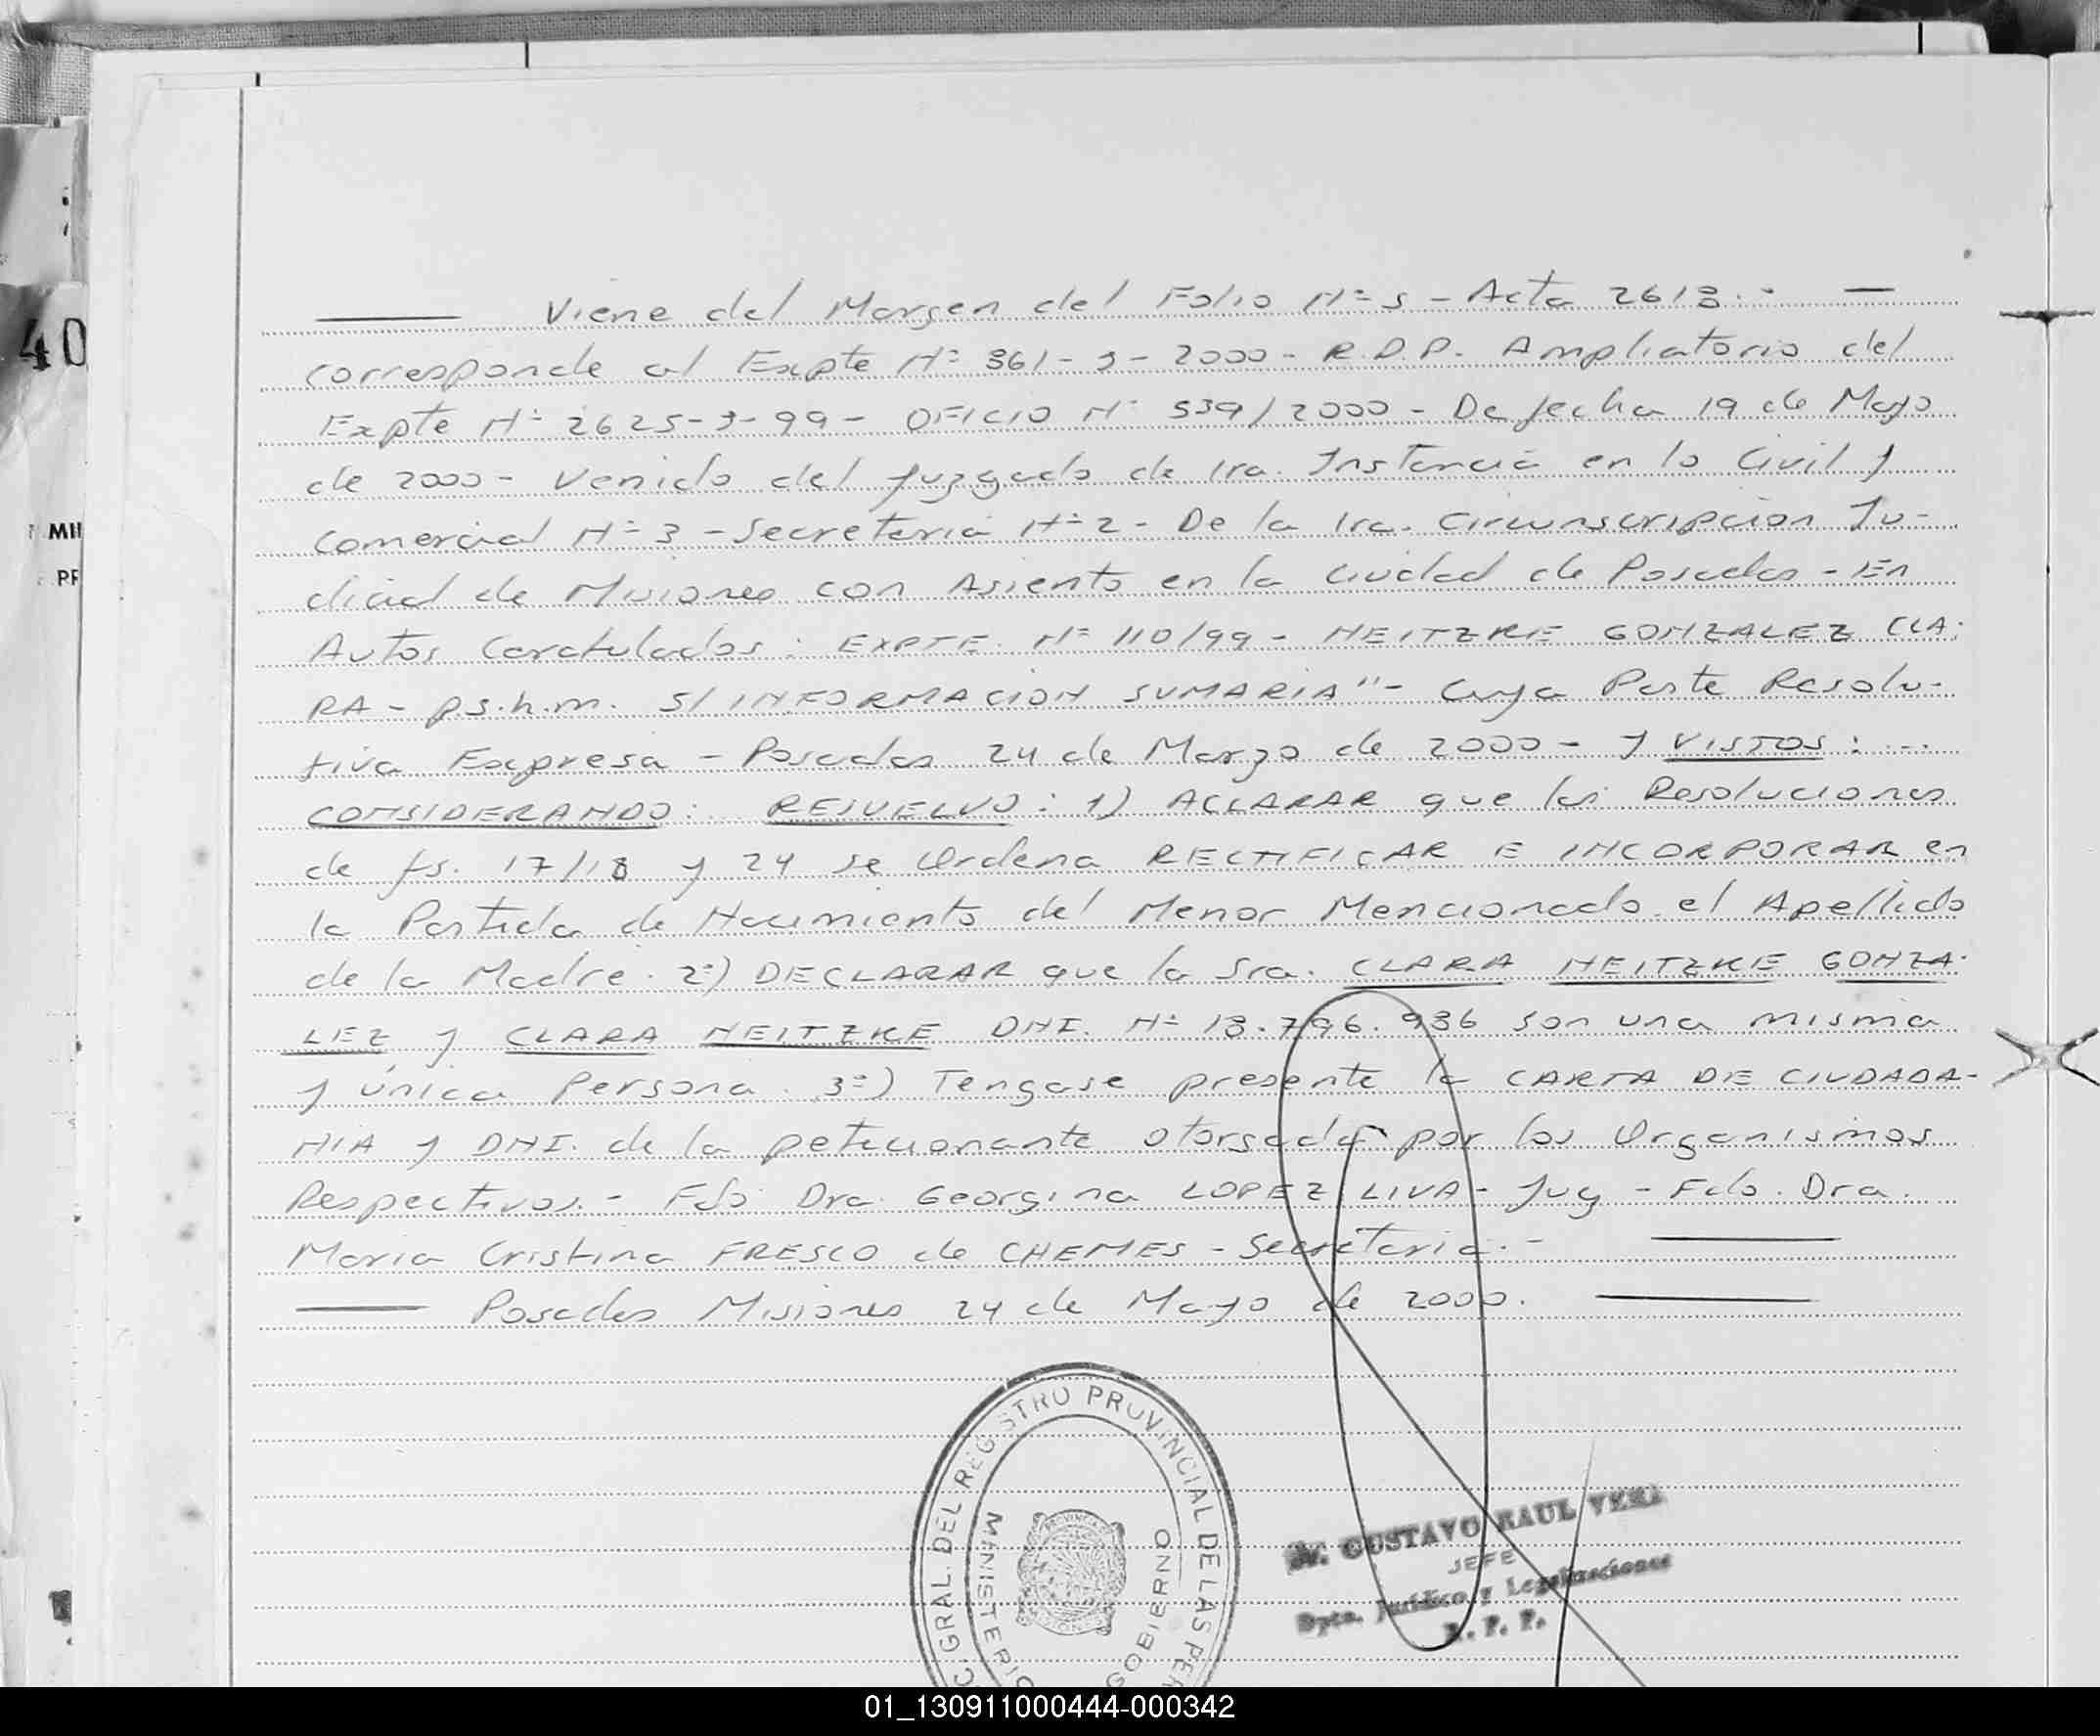 Viene del Margen del Folio Nº 5 - Acta 2618.-
corresponde al Expte Nº 361-3-2000- R.D.P. Ampliatorio del
Expte Nº 2625-3-99- OFICIO Nº 539/2000- De fecha 19 de Mayo
de 2000- Venido del Juzgado de 1ra. Instancia en lo Civil y
Comercial Nº 3 - Secretaria Nº 2 - De la 1ra. Circunscripcion Ju-
dicial de Misiones con Asiento en la Ciudad de Posadas - En
Autos Caratulados: EXPTE. Nº 110/99- NEITZKE GONZALEZ CLA-
RA - p.s.h.m. S/ INFORMACION SUMARIA"- Cuya Parte Resolu-
tiva Expresa - Posadas 24 de Marzo de 2000 - Y VISTOS: ...
CONSIDERANDO: RESUELVO: 1) ACLARAR que las Resoluciones
de fs. 17/18 y 24 se Ordena RECTIFICAR E INCORPORAR en
la Partida de Nacimiento del Menor Mencionado el Apellido
de la Madre. 2º) DECLARAR que la Sra. CLARA NEITZKE GONZA-
LEZ y CLARA NEITZKE DNI. Nº 18.796.936 son una misma
y única Persona. 3º) Tengase presente la CARTA DE CIUDADA-
NIA y DNI. de la peticionante otorgada por los Organismos
Respectivos.- Fdo Dra. Georgina LOPEZ LIVA - Juez - Fdo. Dra.
Maria Cristina FRESCO de CHEMES - Secretaria.-
Posadas Misiones 24 de Mayo de 2000.
GRAL. DEL REGISTRO PROVINCIAL DE LAS PER
MINISTERIO
GOBIERNO
GUSTAVO RAUL VERA
JEFE
Dpto. Jurídico y Legalizaciones
R. P. P.
40
MI
PR
01_130911000444-000342